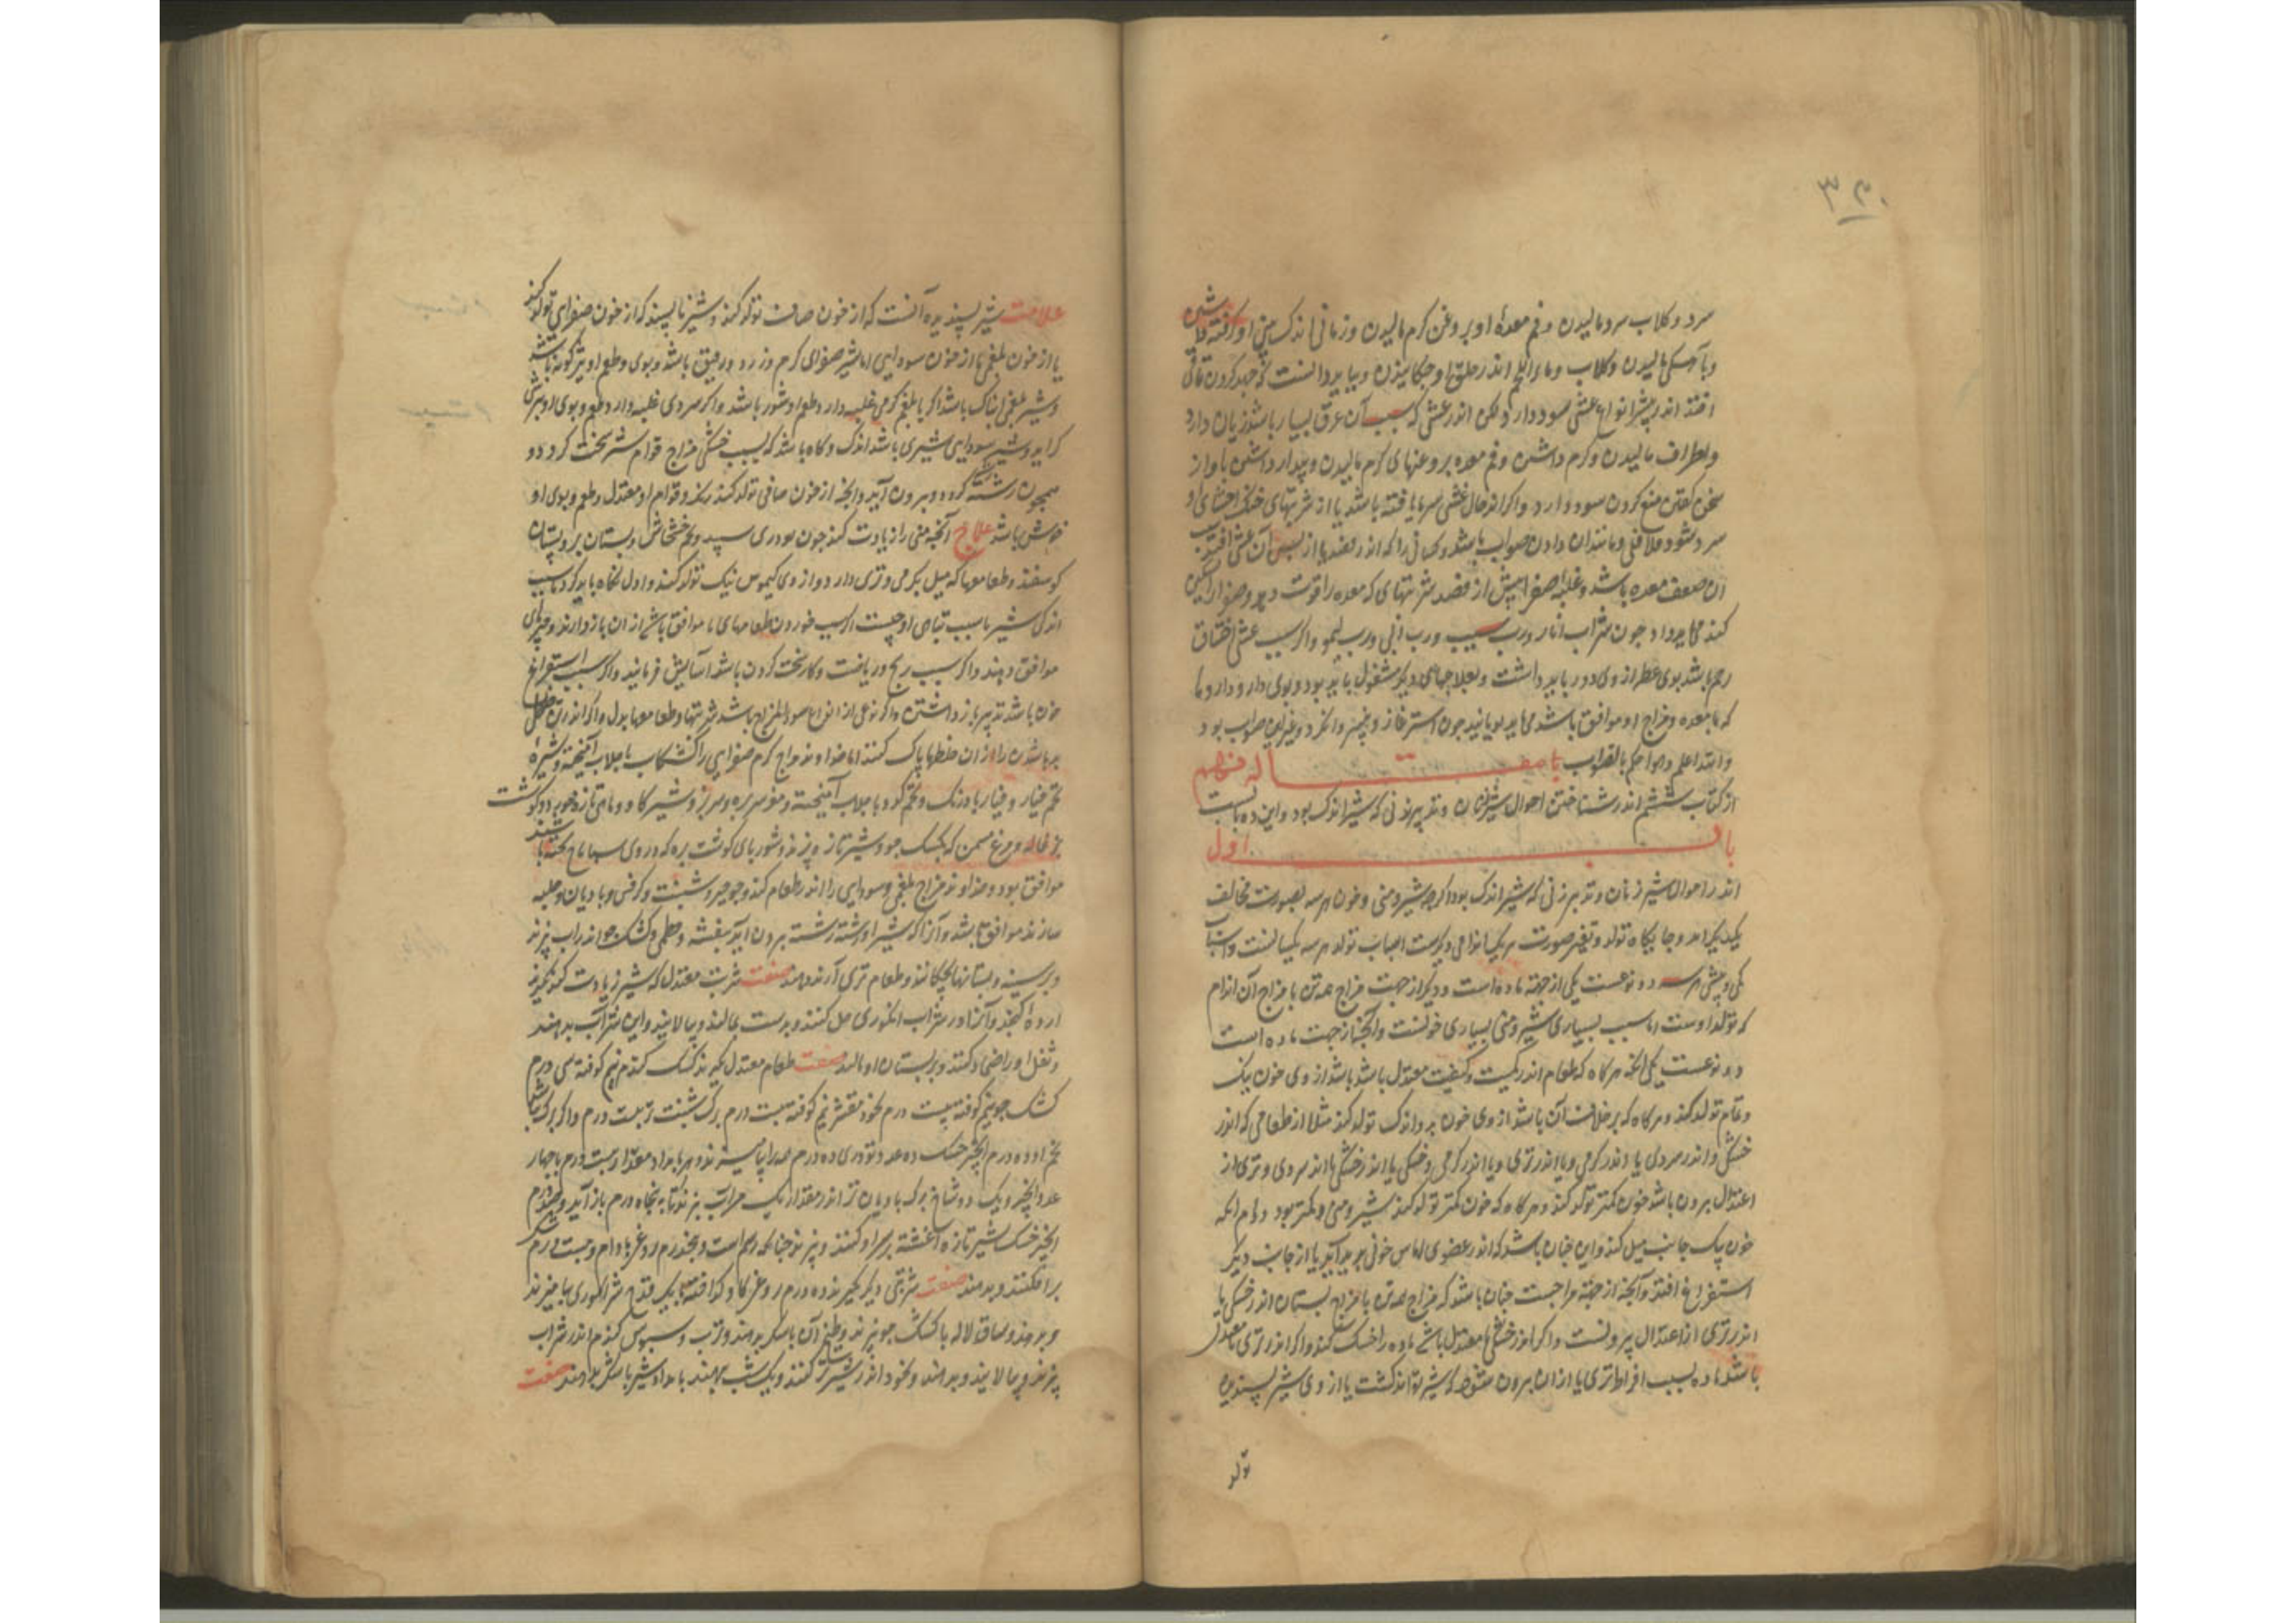 ۳۵۰
سرد و کلاب سرد مالیدن و فم معدهٔ او بروغن کرم مالیدن و زمانی اندک بینی او کرفته داشتن
و بآهستکی مالیدن و کلاب و ماء اللحم اندر حلق او چکانیدن و بباید دانست که جهد کردن تا قی
افتد اندر بیشتر انواع غشی سود دارد ولکن اندر غشی که سبب آن عرق بسیار باشد زیان دارد
و اطراف مالیدن و کرم داشتن و فم معده بروغنهای کرم مالیدن و بیدار داشتن باواز
سخن کفتن منع کردن سود دارد و اکر اندر حال غشی سرما یافته باشد یا از شربتهای خنک احشای او
سرد شود فلافلی و مانند آن دادن صواب باشد و کسانی را که اندر فصد یا از پس آن غشی افتد سبب
آن ضعف معده باشد و غلبهٔ صفرا پیش از فصد شربتهای که معده را قوت دهد و صفرا را تسکین
کند می باید داد چون شراب انار و رب سیب و رب آبی و رب لیمو و اکر سبب غشی اختناق
رحم باشد بوی عطر از وی دور باید داشت و بعلاجهای دیکر مشغول باید بود و بوی دارو و داروها
که با معده و مزاج او موافق باشد می باید بویانید چون استرغاز و پنیر و انکژد و غیر این صواب بود
والله اعلم و احکم بالصواب مقاله نهم
از کتاب ششم اندر شناختن احوال شیر زنان و تدبیر زنی که شیر اندک بود و این ده بابست
باب اول
اندر احوال شیر زنان و تدبیر زنی که شیر اندک بود اکرچه شیر و منی و خون هر سه بصورت مخالف
یکدیکراند و جایکاه تولد و تغیر صورت هر یک نوعی دیکرست اسباب تولد هر سه یکسانست و اسباب
کمی و بیشی هر سه دو نوعست یکی از جهة ماده است و دیکر از جهت مزاج همه تن با مزاج آن اندام
که تولد اوست اما سبب بسیاری شیر و منی بسیاری خونست و آنچه از جهت ماده است
دو نوعست یکی آنکه هرکاه که طعام اندر کمیت و کیفیت معتدل باشد باشد از وی خون نیک
و تمام تولد کند و هرکاه که برخلاف آن باشد از وی خون بد و اندک تولد کند مثلا از طعامی که اندر
خشکی و اندر سردی یا اندر کرمی و یا اندر تری و یا اندر کرمی و خشکی یا اندر خشکی یا اندر سردی و تری از
اعتدال بیرون باشد خون کمتر تولد کند و هرکاه که خون کمتر تولد کند شیر و منی کمتر بود دوم آنکه
خون بیک جانب میل کند و این چنان باشد که اندر عضوی آماس خونی پدید آید یا از جانب دیکر
استفراغ افتد و آنچه از جهة مزاجست چنان باشد که مزاج همه تن یا مزاج پستان اندر خشکی یا
اندر تری از اعتدال بیرونست و اکر اندر خشکی نا معتدل باشد ماده را خشک کند و اکر اندر تری نا معتدل
باشد ماده بسبب افراط تری یا از آن بیرون شود که شیر تواند کشت یا از وی شیر پسندیده
تولد
علامت شیر پسندیده آنست که از خون صاف تولد کند و شیر نا پسند که از خون صفرای تولد کند
یا از خون بلغمی یا از خون سودایی اما شیر صفرای کرم و زرد و رقیق باشد و بوی و طعم او تیز کونه باشد
و شیر بلغمی آبناک باشد اکر با بلغم کرمی غلبه دارد طعم او شور باشد و اکر سردی غلبه دارد طعم و بوی او بترشی
کراید و شیر سودایی شیری باشد اندک و کاه باشد که بسبب خشکی مزاج قوام شیر سخت کردد و
همچون رشته کردد و بیرون آید و آنچه از خون صافی تولد کند رنک و قوام او معتدل و طعم و بوی او
خوش باشد علاج آنچه منی را زیادت کند چون بودری سپید و تخم خشخاش و پستان بز و پستان
کوسفند و طعامها که میل بکرمی و تری دارد و از وی کیموس نیک تولد کند و اول نکاه باید کرد تا سبب
اندکی شیر یا سبب تباهی او چیست اکر سبب خوردن طعامهای نا موافق باشد از آن باز دارند و چیزهای
موافق دهند و اکر سبب رنج و ریاضت و کار سخت کردن باشد آسایش فرمایند و اکر سبب استفراغ
خون باشد تدبیر باز داشتن و اکر نوعی از انواع سوء المزاج باشد شربتها و طعامها بدل و اکر اندر تن خلطی
بد باشد تن را از آن خلطها پاک کنند اما خداوند مزاج کرم صفرایی را کشکاب با جلاب آمیخته و شیرهٔ
تخم خیار و خیار بادرنک و تخم کدو با جلاب آمیخته و مغز سر بره و سر بز و شیر کاو و ماهی تازه خوب بود و کوشت
بزغاله و مرغ مسمن که بکشک جو و شیر تازه پزند و شوربای کوشت بره که در وی سپاناخ پخته باشند
موافق بود و خداوند مزاج بلغمی و سودایی را اندر طعام کند و جرجیر و شبت و کرفس و بادیان و حلبه
سازند موافق باشد و آنرا که شیر او رشته رشته بیرون آید بنفشه و خطمی و کشک جو اندر آب پزند
و بر سینه و پستانها چکانند و طعام تری آرنده دهند صفت شربت معتدل که شیر زیادت کند بکیرند
ارده کنجد و آنرا در شراب انکوری حل کنند و بدست بمالند و بپالایند و این شراب بدهند
و ثفل او را ضماد کنند و بر پستان او مالند صفت طعام معتدل بکیرند کشک کندم نیم کوفته سی درم
کشک جو نیم کوفته بیست درم نخود مقشر نیم کوفته بیست درم برک شبت تر بیست درم و اکر برک نباشد
تخم او ده درم انجیر خشک ده عدد تودری ده درم همه را بیامیزند و هر بامداد مقدار بیست درم با چهار
عدد انجیر و یک دو شاخ برک بادیان تر اندر مقدار یک من آب بپزند تا به پنجاه درم باز آید و پنج درم
انجیر خشک بشیر تازه آغشته بر سر او کنند و بپزند چنانکه رسم است و پنج درم روغن بادام و بیست درم شکر
برافکنند و بدهند صفت شربتی دیکر بکیرند ده درم روغن کاو کداخته با یک قدح شراب انکوری بیامیزند
و بدهند و ساق لاله با کشک جو بپزند و طبیخ آن با شکر بدهند و ترب و سبوس کندم اندر شراب
بپزند و بپالایند و بدهند و نخود اندر شیر تازه تر کنند و یک شب بنهند بامداد شیر با شکر بدهند صفت